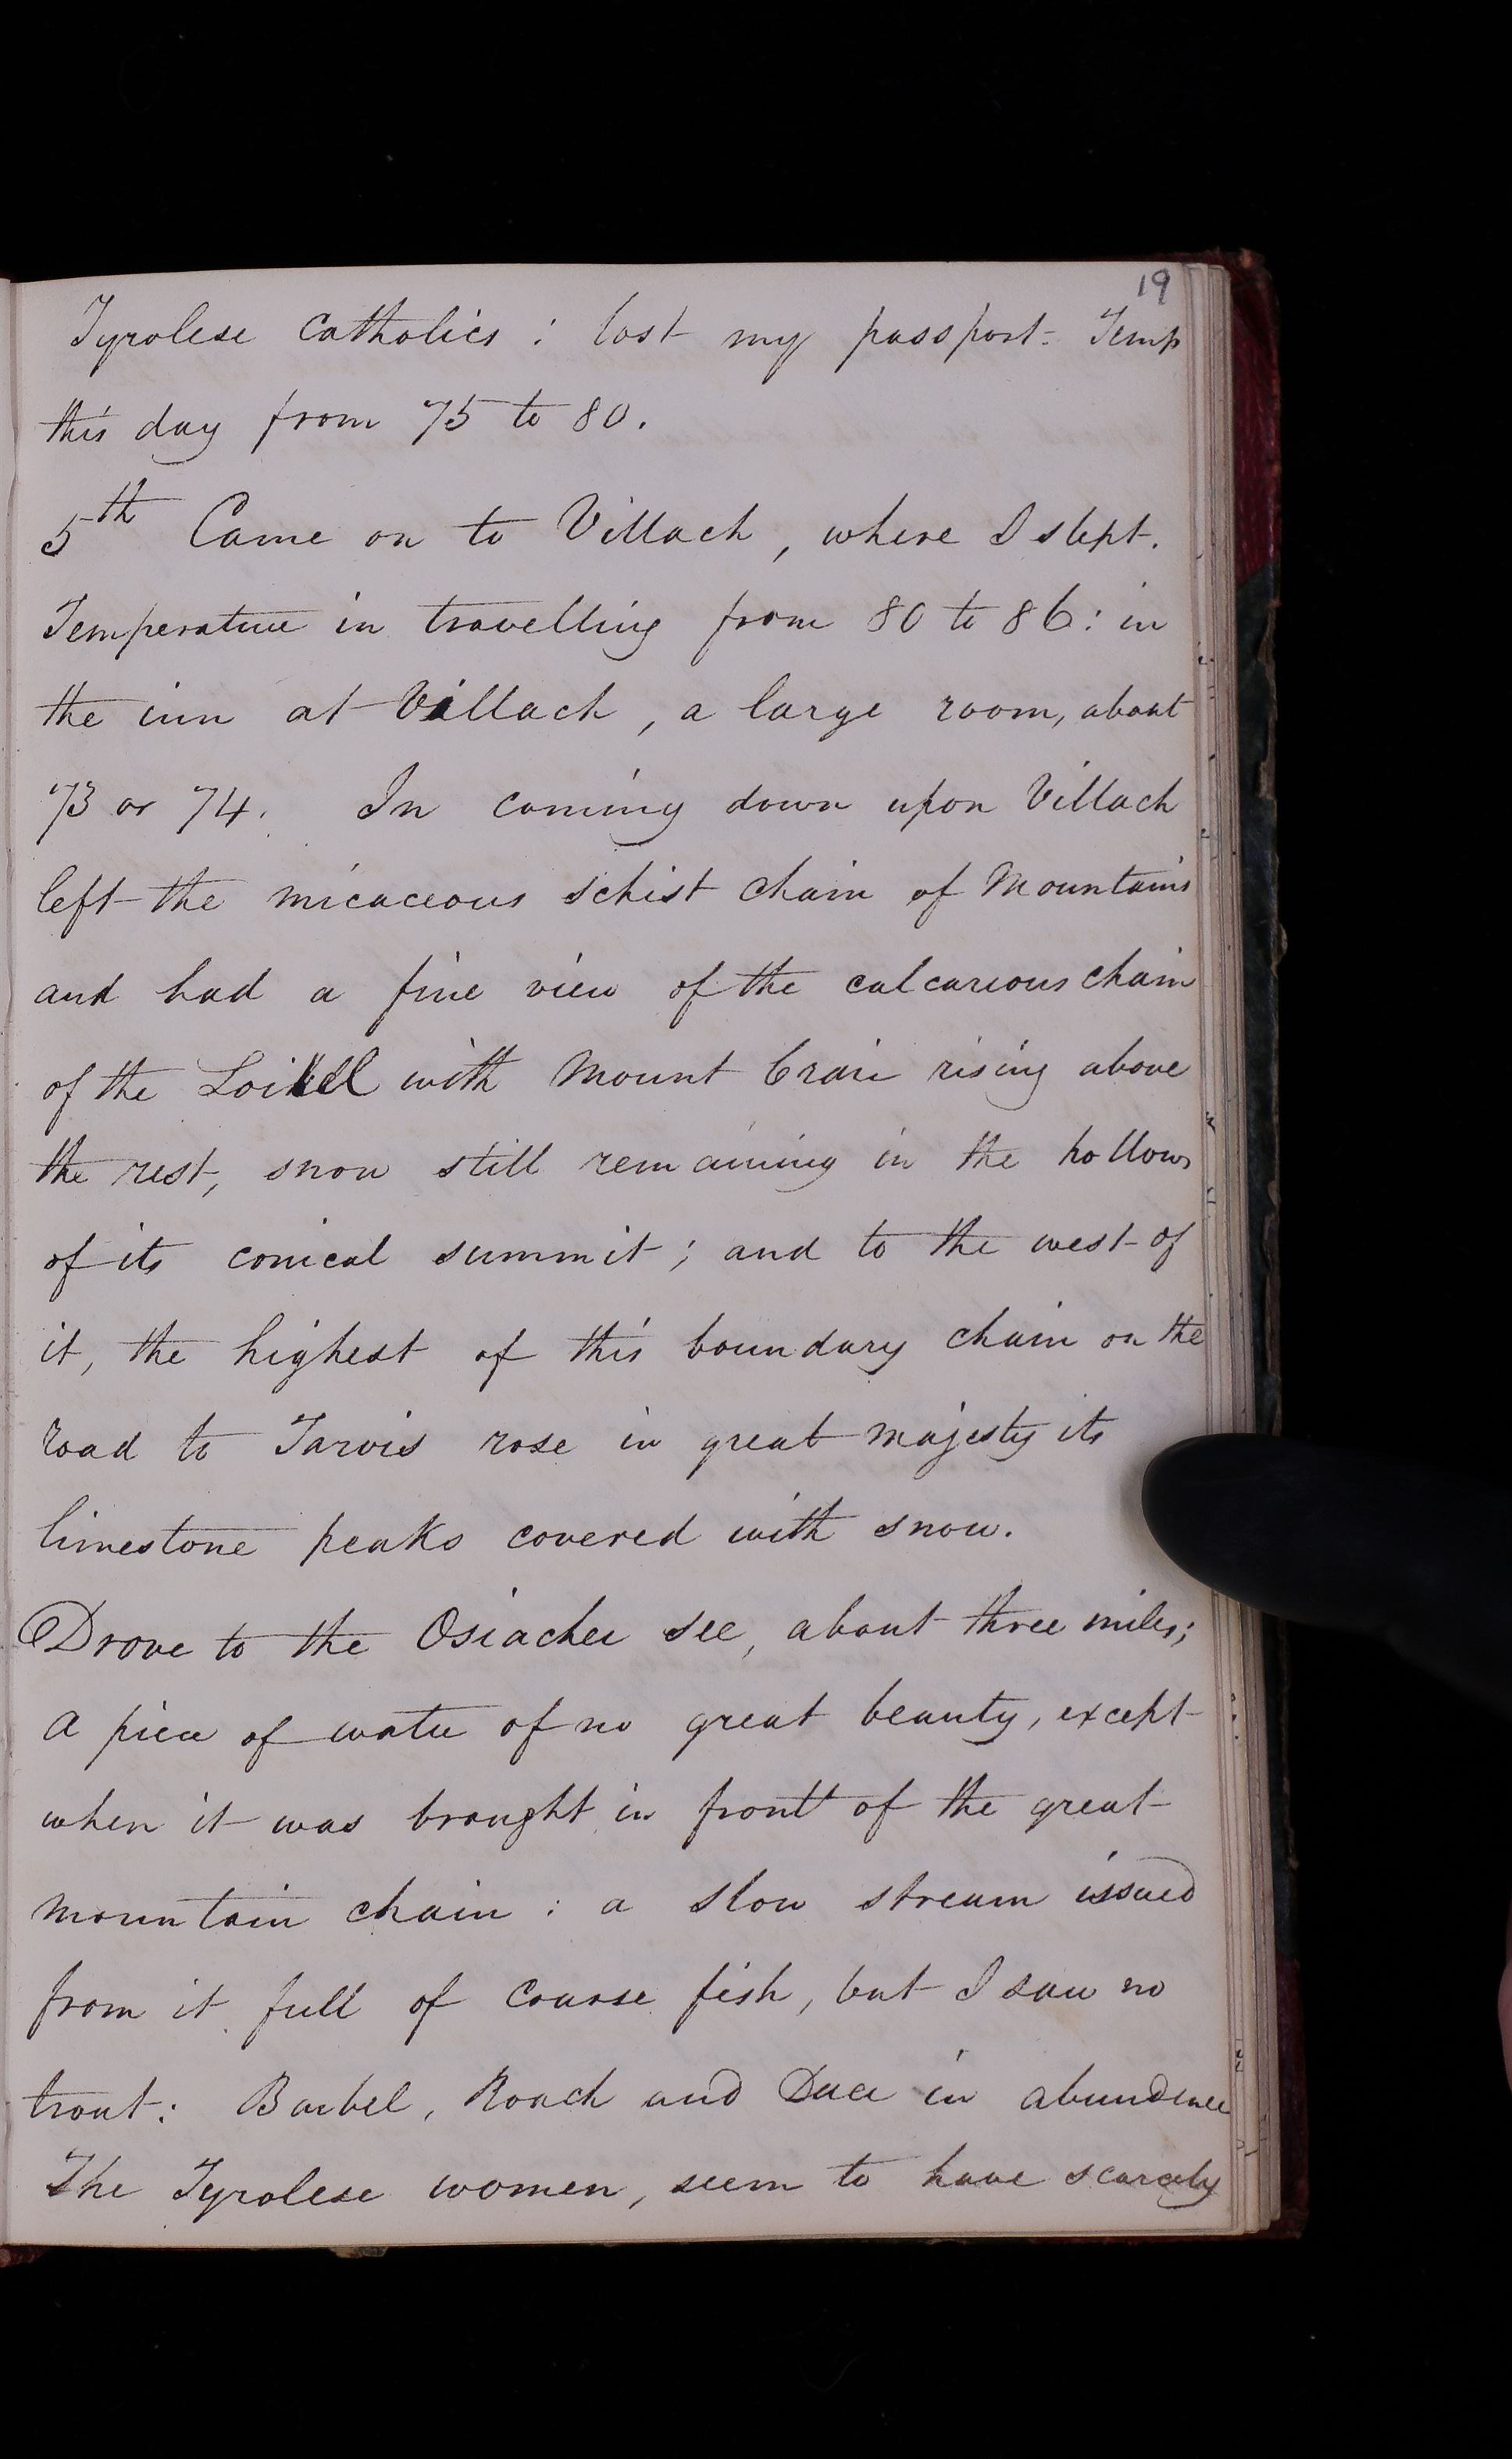 19
Tyrolese Catholics : lost my passport. Temp
this day from 75 to 80.
5th Came on to Villach, where I slept.
Temperature in travelling from 80 to 86: in
the inn at Villach, a large room, about
73 or 74. In coming down upon Villach
left the micaceous schist chain of Mountains
and had a fine view of the calcarious chain
of the with Mount rising above
the rest, snow still remaining in the hollows
of its conical summit; and to the west of
it, the highest of this boundary chain on the
road to Tarvis rose in great majesty its
limestone peaks covered with snow.
Drove to the Osiacher see, about three miles;
a piece of water of no great beauty, except
when it was brought in front of the great
mountain chain : a slow stream issued
from it full of coarse fish, but I saw no
trout: Barbel, Roach and Dace in abundance
The Tyrolese women, seem to have scarcely